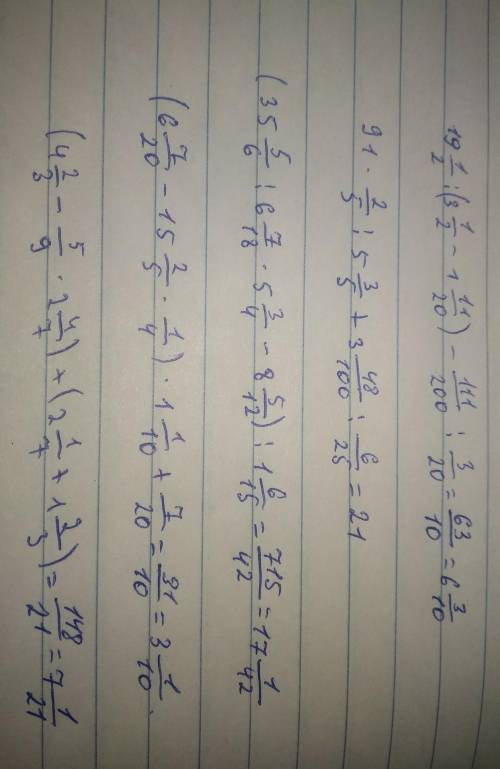 19 1/2 : (3 1/2 - 1 11/20) - 111/200 : 3/20 = 63/10 = 6 3/10
91 · 2/5 : 5 3/5 + 3 48/100 : 6/25 = 21
(35 5/6 : 6 7/18 · 5 3/4 - 8 5/12) : 1 6/15 = 715/42 = 17 1/42
(6 7/20 - 15 2/5 · 1/4) · 1 1/10 + 7/20 = 31/10 = 3 1/10.
(4 2/3 - 5/9 · 2 4/7) + (2 1/7 + 1 2/3) = 148/21 = 7 1/21